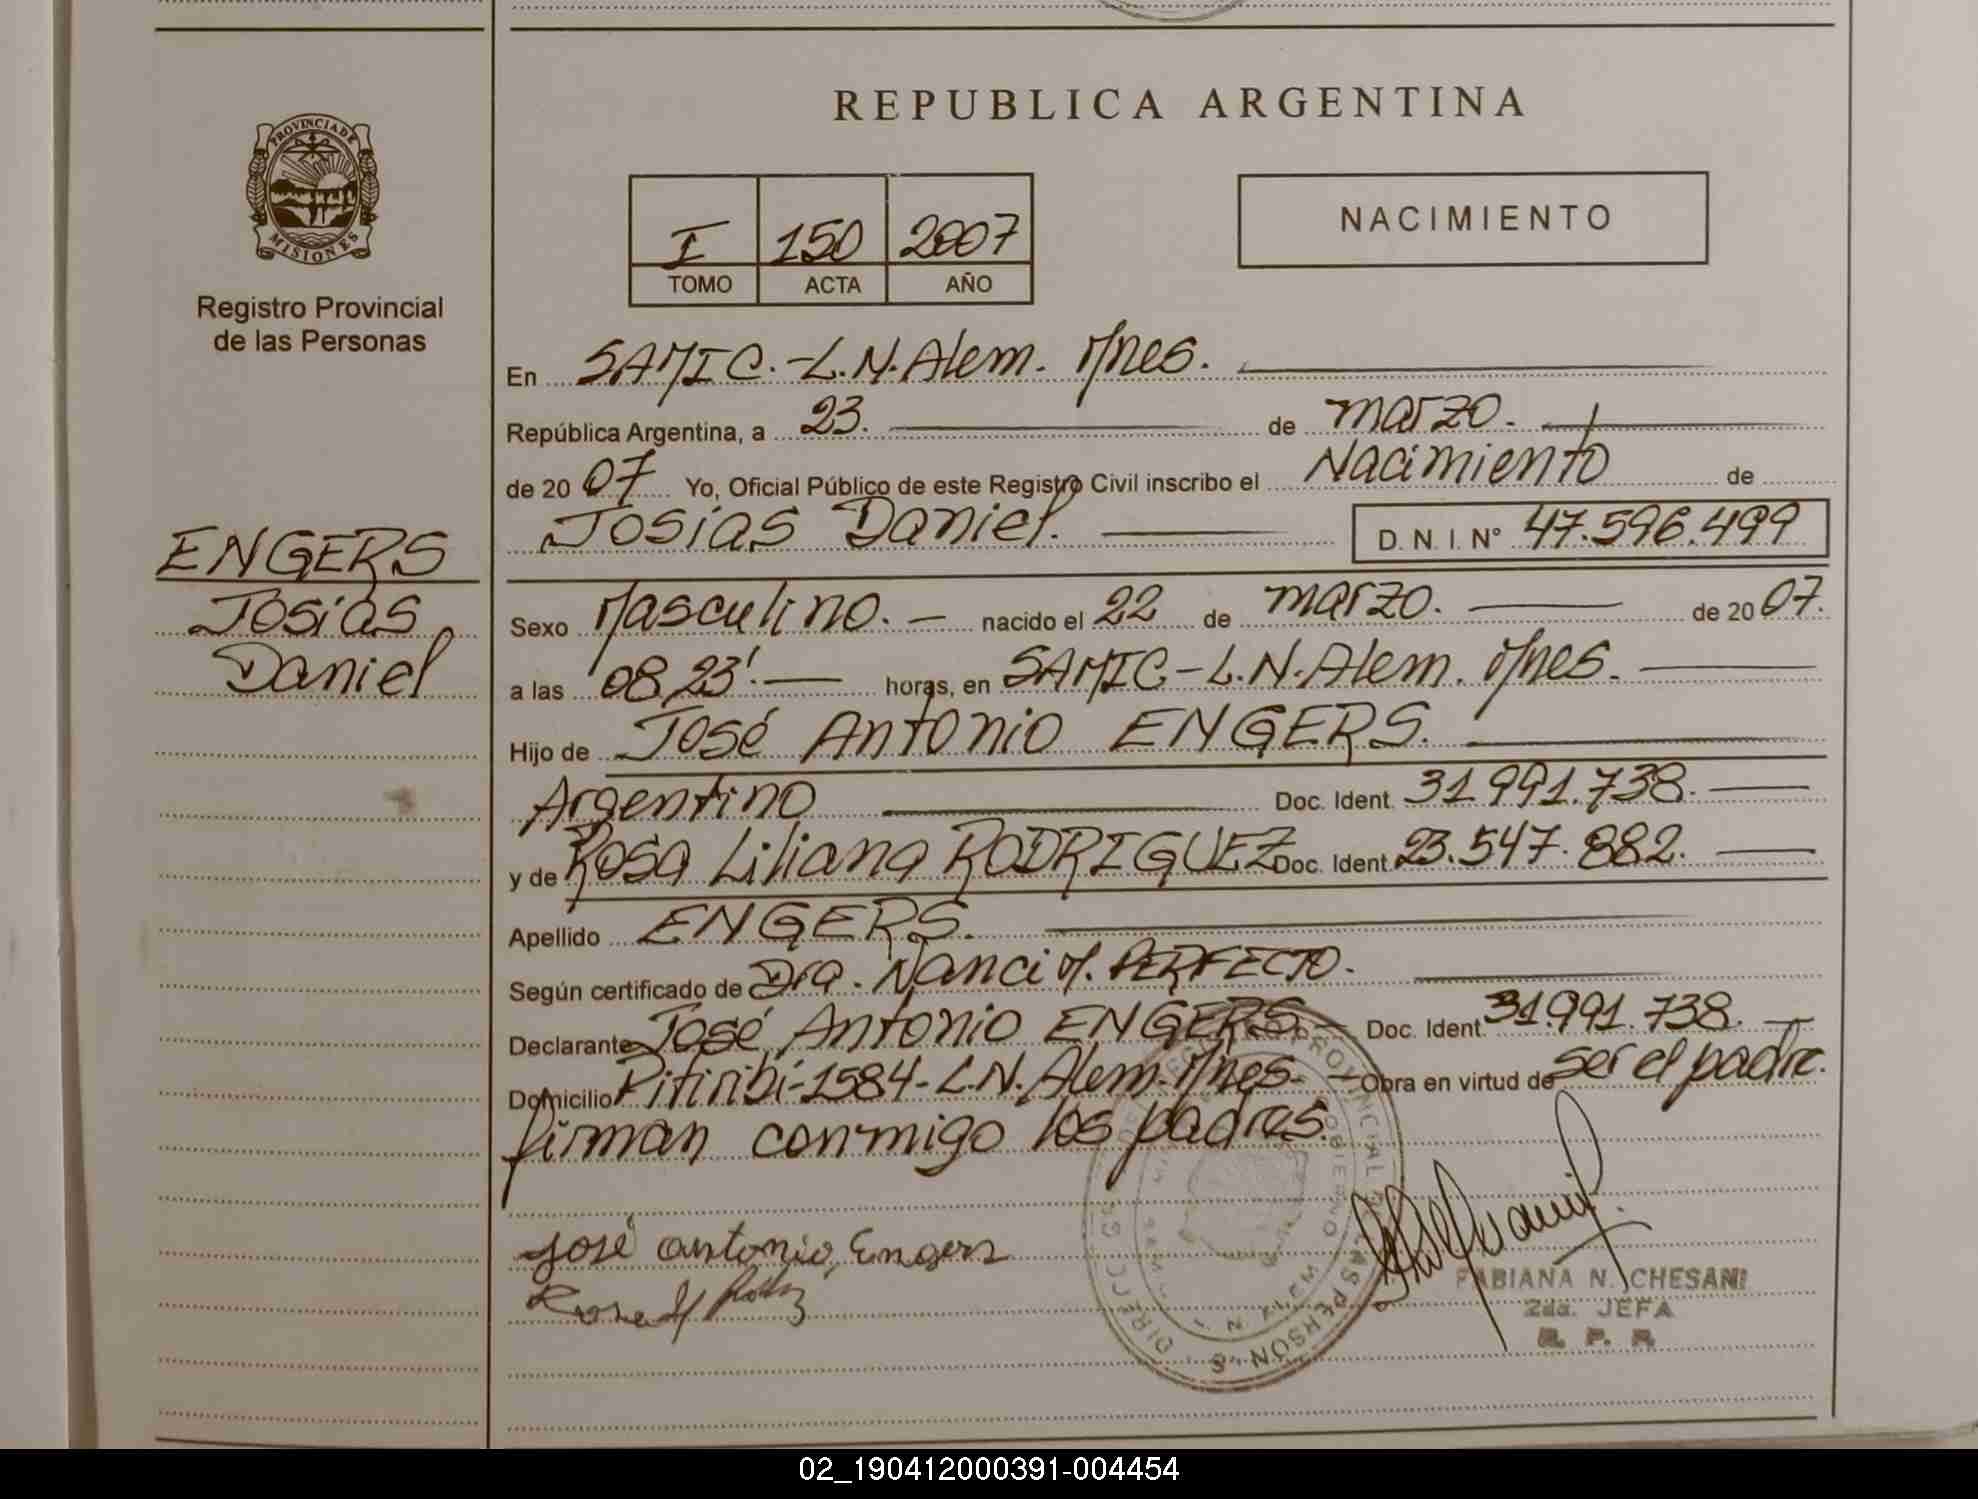 REPUBLICA ARGENTINA
PROVINCIA DE
MISIONES
Registro Provincial
de las Personas
I 150 2007
TOMO ACTA AÑO
NACIMIENTO
En SAMIC.-L.N.Alem. Mnes.
República Argentina, a 23. de marzo.
de 20 07 Yo, Oficial Público de este Registro Civil inscribo el Nacimiento de
Josías Daniel. D. N. I. N° 47.596.499
ENGERS
Josías
Daniel
Sexo Masculino. nacido el 22 de marzo. de 20 07.
a las 08,23'. horas, en SAMIC-L.N.Alem. Mnes.
Hijo de José Antonio ENGERS.
Argentino Doc. Ident. 31.991.738.
y de Rosa Liliana RODRIGUEZ Doc. Ident. 23.547.882.
Apellido ENGERS.
Según certificado de Dra. Nanci M. PERFECTO.
Declarante José Antonio ENGERS- Doc. Ident 31.991.738.
Domicilio Pitiribí-1584-L.N.Alem.Mnes- Obra en virtud de ser el padre.
firman conmigo los padres.
José antonio, Engers
FABIANA N. CHESANI
2da. JEFA
R. P. P.
02_190412000391-004454